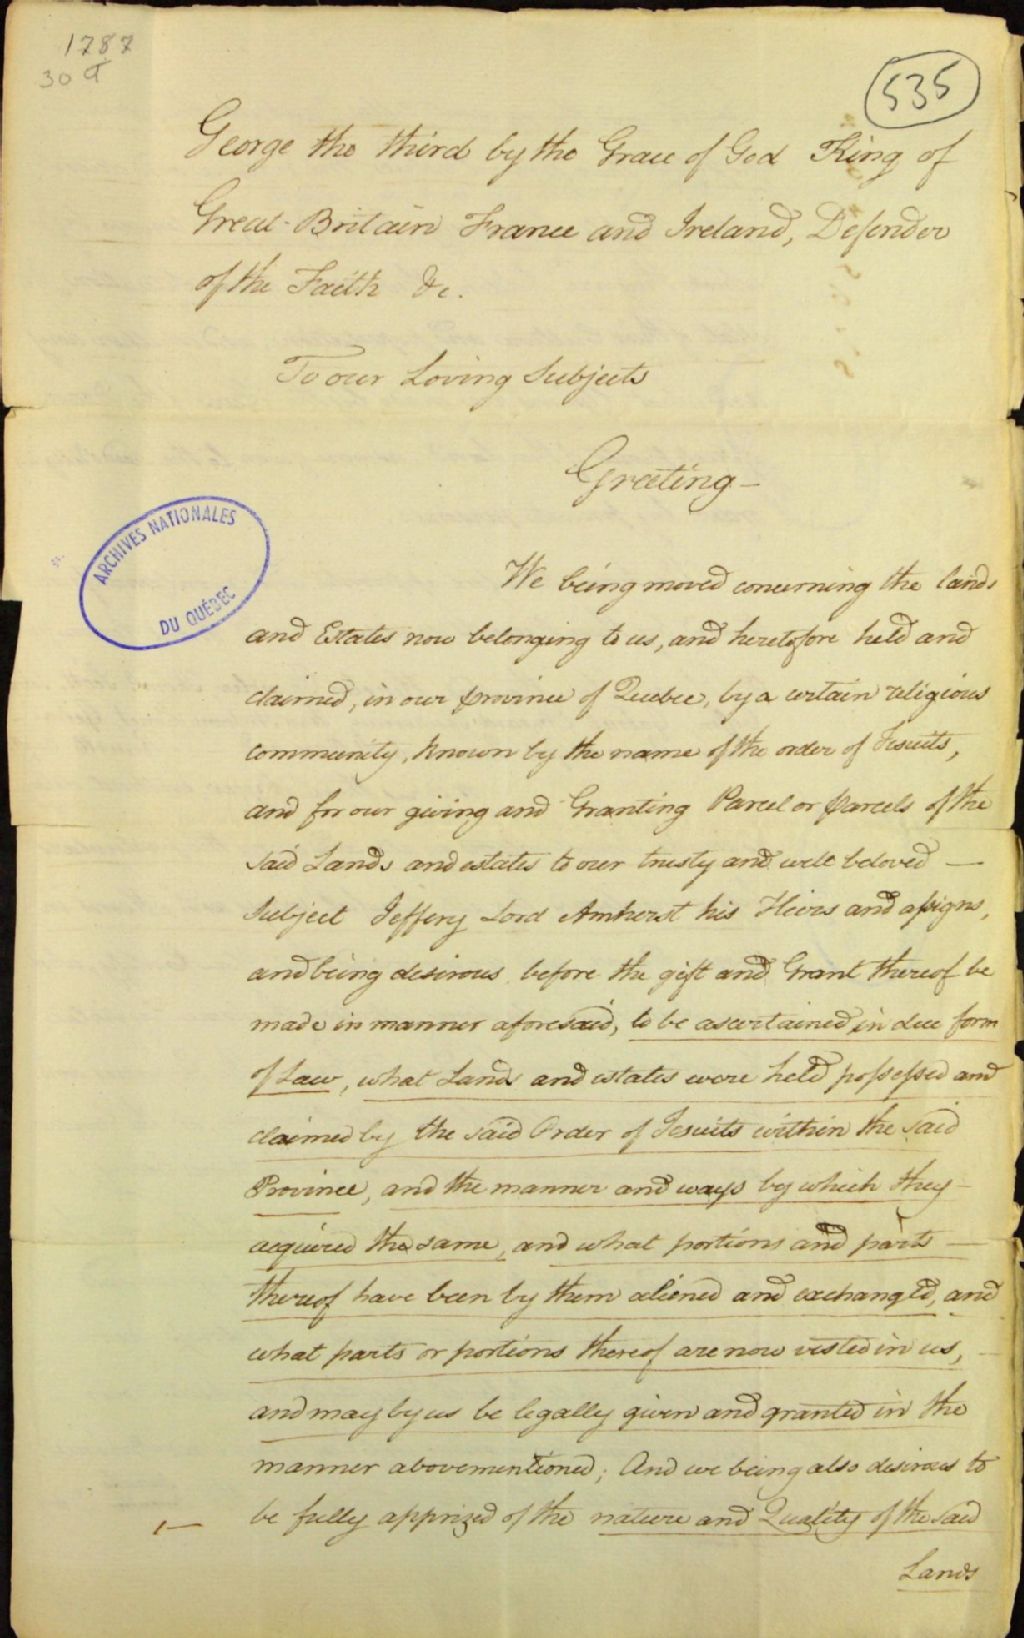 1787
30 a
535
George the third by the Grace of God King of
Great-Britain France and Ireland, Defender
of the Faith &c.
To our Loving Subjects
Greeting —
ARCHIVES NATIONALES
DU QUÉBEC
We being moved concerning the lands
and Estates now belonging to us, and heretofore held and
claimed, in our province of Quebec, by a certain religious
community, known by the name of the order of Jesuits,
and for our giving and Granting Parcel or parcels of the
said Lands and estates to our trusty and well beloved —
subject Jeffery Lord Amherst his Heirs and assigns,
and being desirous before the gift and Grant thereof be
made in manner aforesaid, to be ascertained in due form
of Law, what Lands and estates were held possessed and
claimed by the said Order of Jesuits within the said
Province, and the manner and ways by which they —
acquired the same, and what portions and parts —
thereof have been by them aliened and exchanged, and
what parts or portions thereof are now vested in us, —
and may by us be legally given and granted in the
manner abovementioned; And we being also desirous to
1— be fully apprized of the nature and Quality of the said
Lands